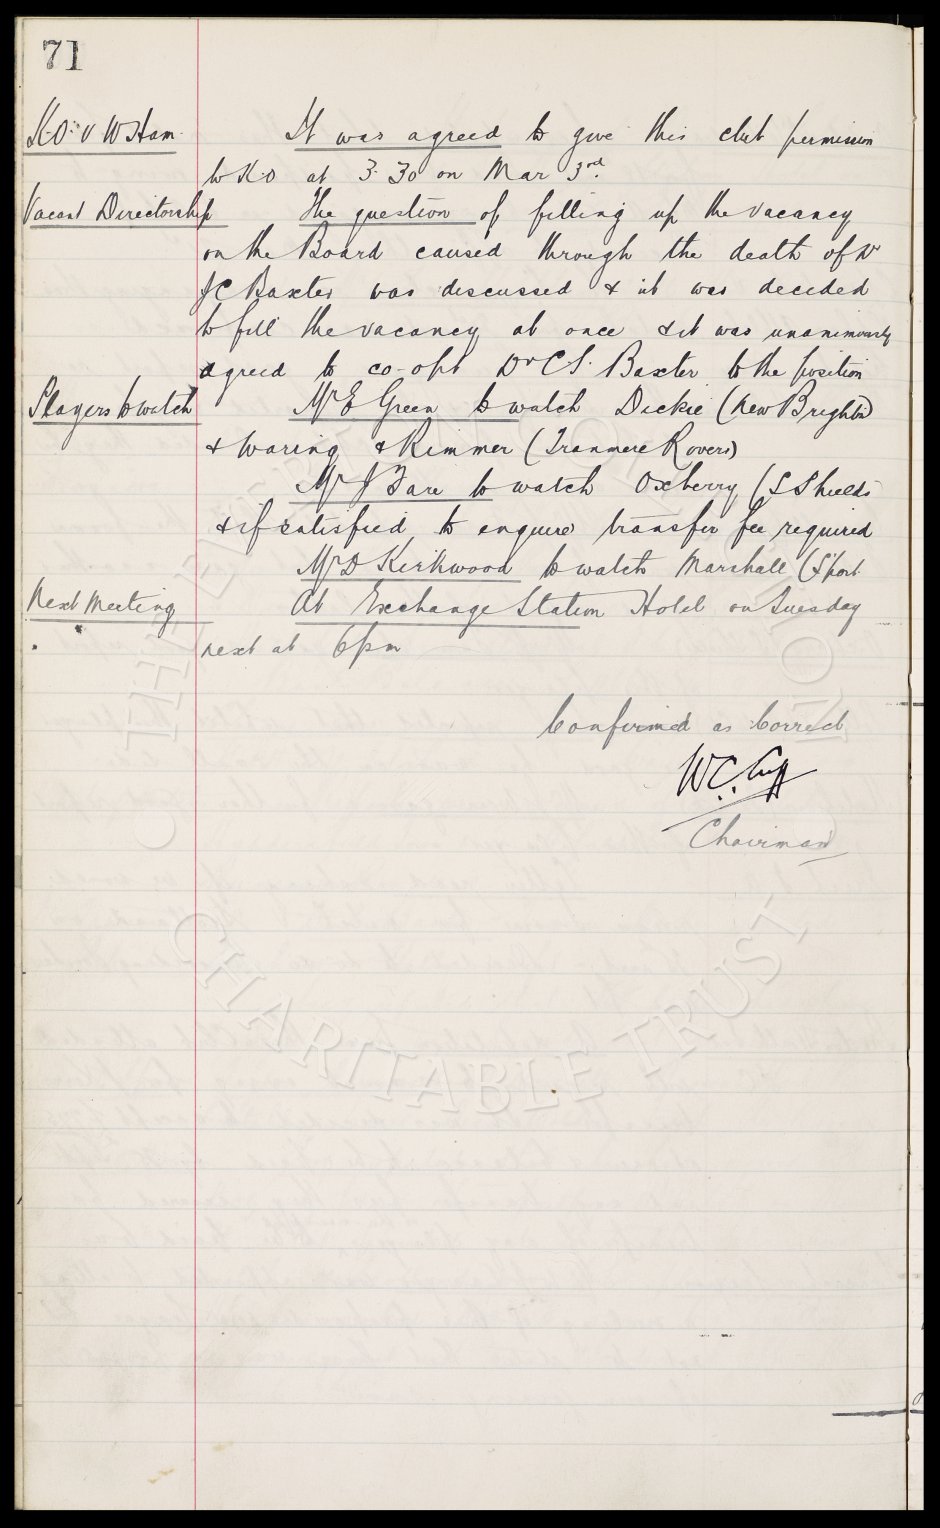 71
K.O. v W Ham. It was agreed to give this club permission
to K.O at 3.30 on Mar 3rd.
Vacant Directorship The question of filling up the vacancy
on the Board caused through the death of Dr
J C Baxter was discussed & it was decided
to fill the vacancy at once & it was unanimously
agreed to co-opt Dr C. S. Baxter to the position
Players to watch Mr E Green to watch Dickie (New Brighton)
& Waring & Rimmer (Tranmere Rovers)
Mr J Fare to watch Oxberry (S Shields
& if satisfied to enquire transfer fee required
Mr D Kirkwood to watch Marshall (S'port.
Next Meeting At Exchange Station Hotel on Tuesday
next at 6pm
Confirmed as Correct
W.C. Cuff
Chairman
© THE EVERTON COLLECTION
CHARITABLE TRUST